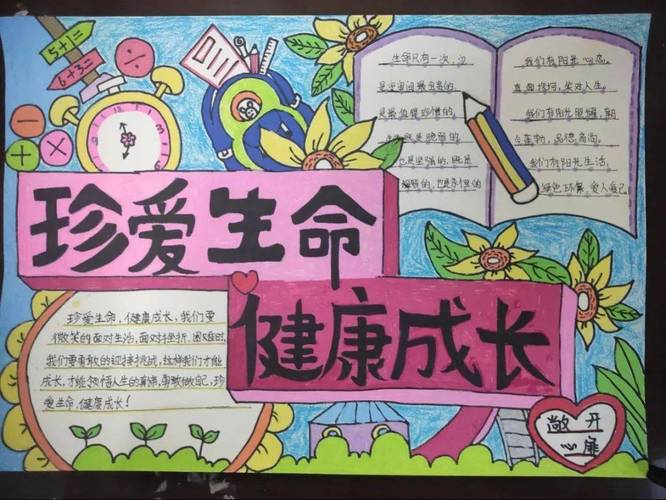 5+1=
6+3=
珍爱生命
健康成长
生命只有一次，
是最值得珍惜的，
我们有阳光心态，
直面坎坷，笑对人生。
我们有阳光
品德高尚。
我们有阳光生活，
绿色环保，爱人爱己。
珍爱生命，健康成长，我们要
微笑的面对生活，面对挫折，困难时，
我们要勇敢的迎接挑战，这样我们才能
成长，才能领悟人生的真谛，勇敢做自己，珍
爱生命，健康成长！
敞开
心扉